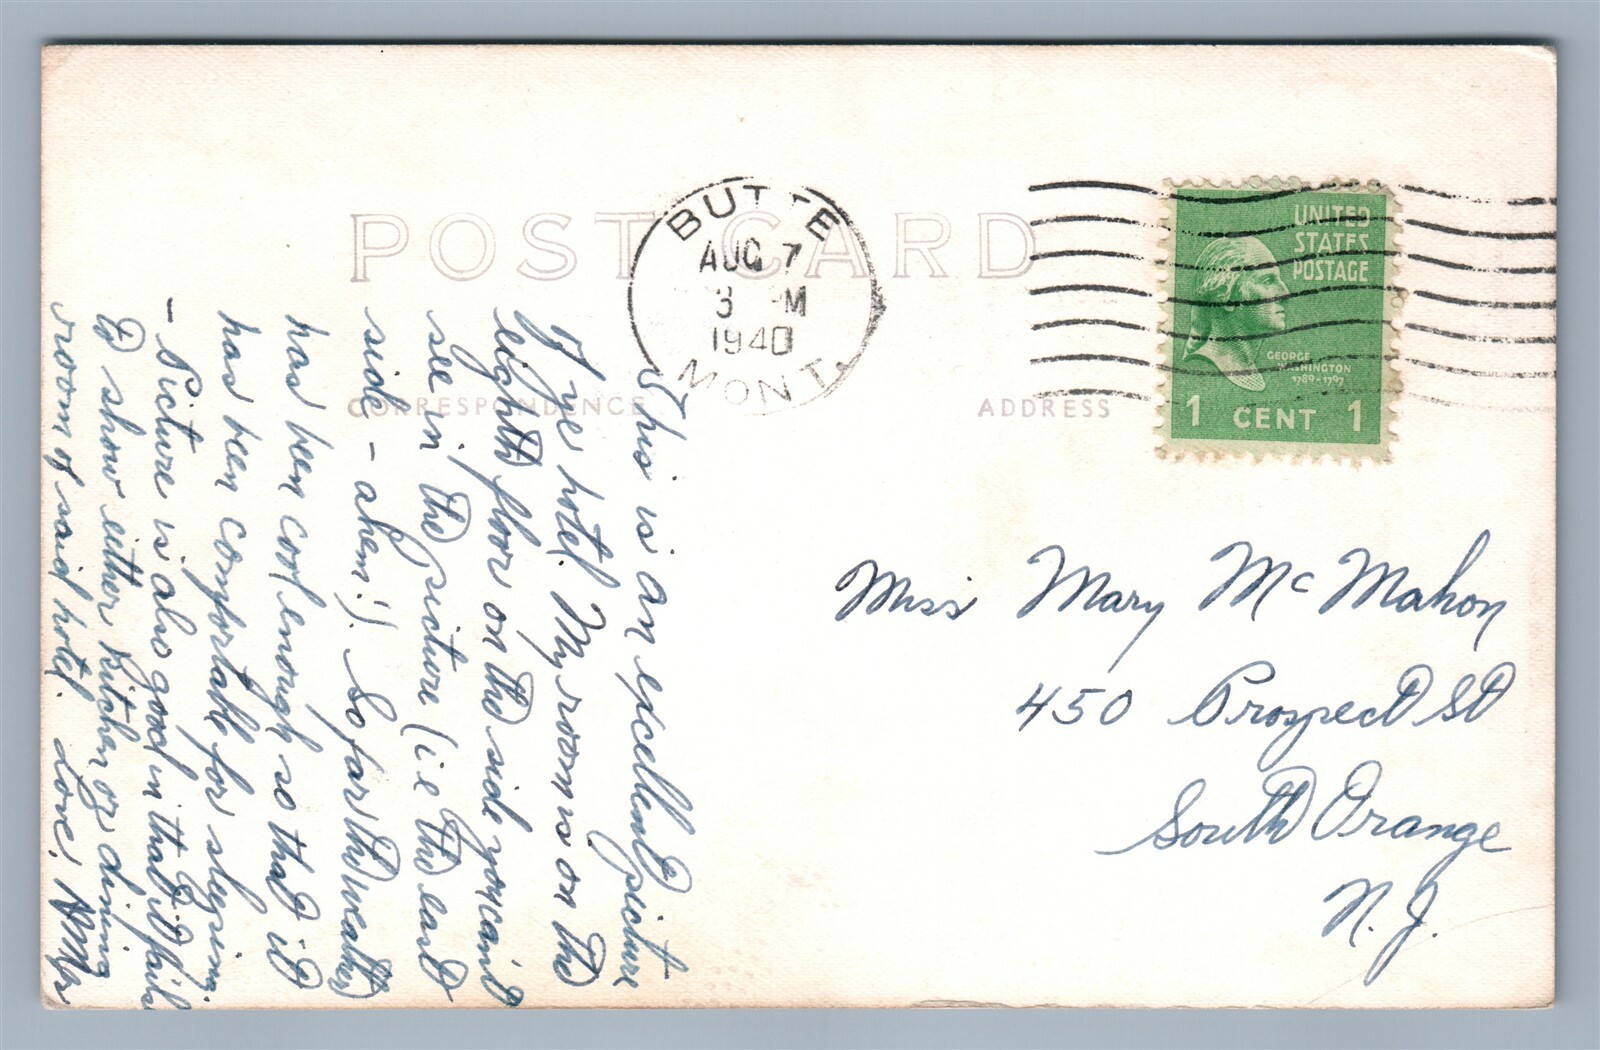 POST CARD
CORRESPONDENCE
ADDRESS
BUTTE
AUG 7
3 M
1940
MONT.
UNITED
STATES
POSTAGE
GEORGE
WASHINGTON
1789-1797
1 CENT 1
This is an excellent picture
of ye hotel. My room is on the
eighth floor on the side you can't
see in the picture (i.e the east
side - ahem!). So far the weather
has been cool enough so that it
has been comfortable for sleeping.
- Picture is also good in that it fails
to show either kitchen or dining
room of said hotel. Love,
Miss Mary McMahon
450 Prospect St
South Orange
N. J.